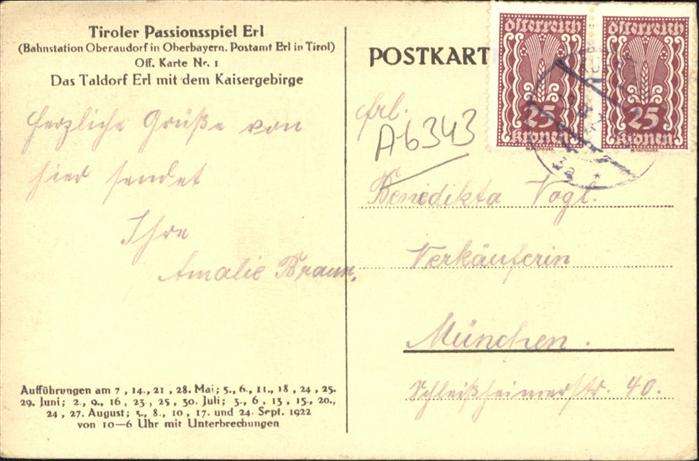 Tiroler Passionsspiel Erl
(Bahnstation Oberaudorf in Oberbayern. Postamt Erl in Tirol)
Off. Karte Nr. 1
Das Taldorf Erl mit dem Kaisergebirge
herzliche Grüße von
hier sendet
Ihre
Amalie Braun.
Aufführungen am 7., 14., 21., 28. Mai; 5., 6., 11., 18., 24., 25.
29. Juni; 2., 9., 16., 23., 25., 30. Juli; 3., 6., 13., 15., 20.,
24., 27. August; 8., 10., 17. und 24. Sept. 1922
von 10—6 Uhr mit Unterbrechungen
POSTKART
österreich
25
kronen
österreich
25
kronen
Frl.
A6343
Benedikta Vogl.
Verkäuferin
München.
Schleißheimerstr. 40.